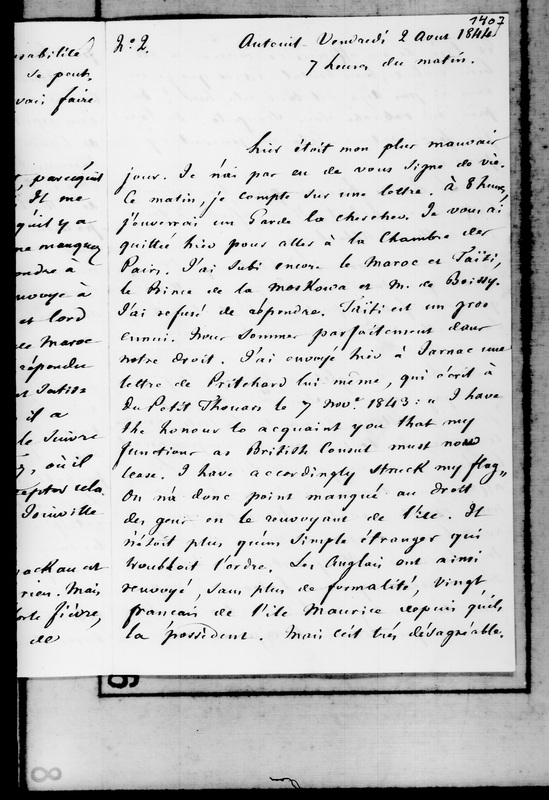 1407
N° 2. Auteuil - Vendredi 2 Aout 1844
7 heures du matin.
hier était mon plus mauvais
jour. Je n'ai pas eu de vous signe de vie.
Ce matin, je compte sur une lettre. à 8 heures,
j'enverrai un Garde la chercher. Je vous ai
quittée hier pour aller à la Chambre des
Pairs. J'ai subi encore le Maroc et Taïti,
le Prince de la Moskowa et M. de Boissy.
J'ai refusé de répondre. Taïti est un gros
ennui. Nous sommes parfaitement dans
notre droit. J'ai envoyé hier à Jarnac une
lettre de Pritchard lui même, qui écrit à
Du Petit Thouars le 7 nov.e 1843 : « I have
the honour to acquaint you that my
functions as British Consul must now
cease. I have accordingly struck my flag »
On n'a donc point manqué au droit
des gens en le renvoyant de l'ile. Il
n'était plus qu'un simple étranger qui
troubloit l'ordre. Les Anglais ont ainsi
renvoyé, sans plus de formalité, vingt
français de l'ile Maurice depuis qu'ils
la possèdent. Mais c'est très désagréable.
se peut,
faire
parcequ'il
Il me
qu'il y a
manquez
à
à
et lord
Maroc
répondu
il a
le suivre
où il
cela.
Joinville
et
rien. Mais
forte fièvre,
de
8